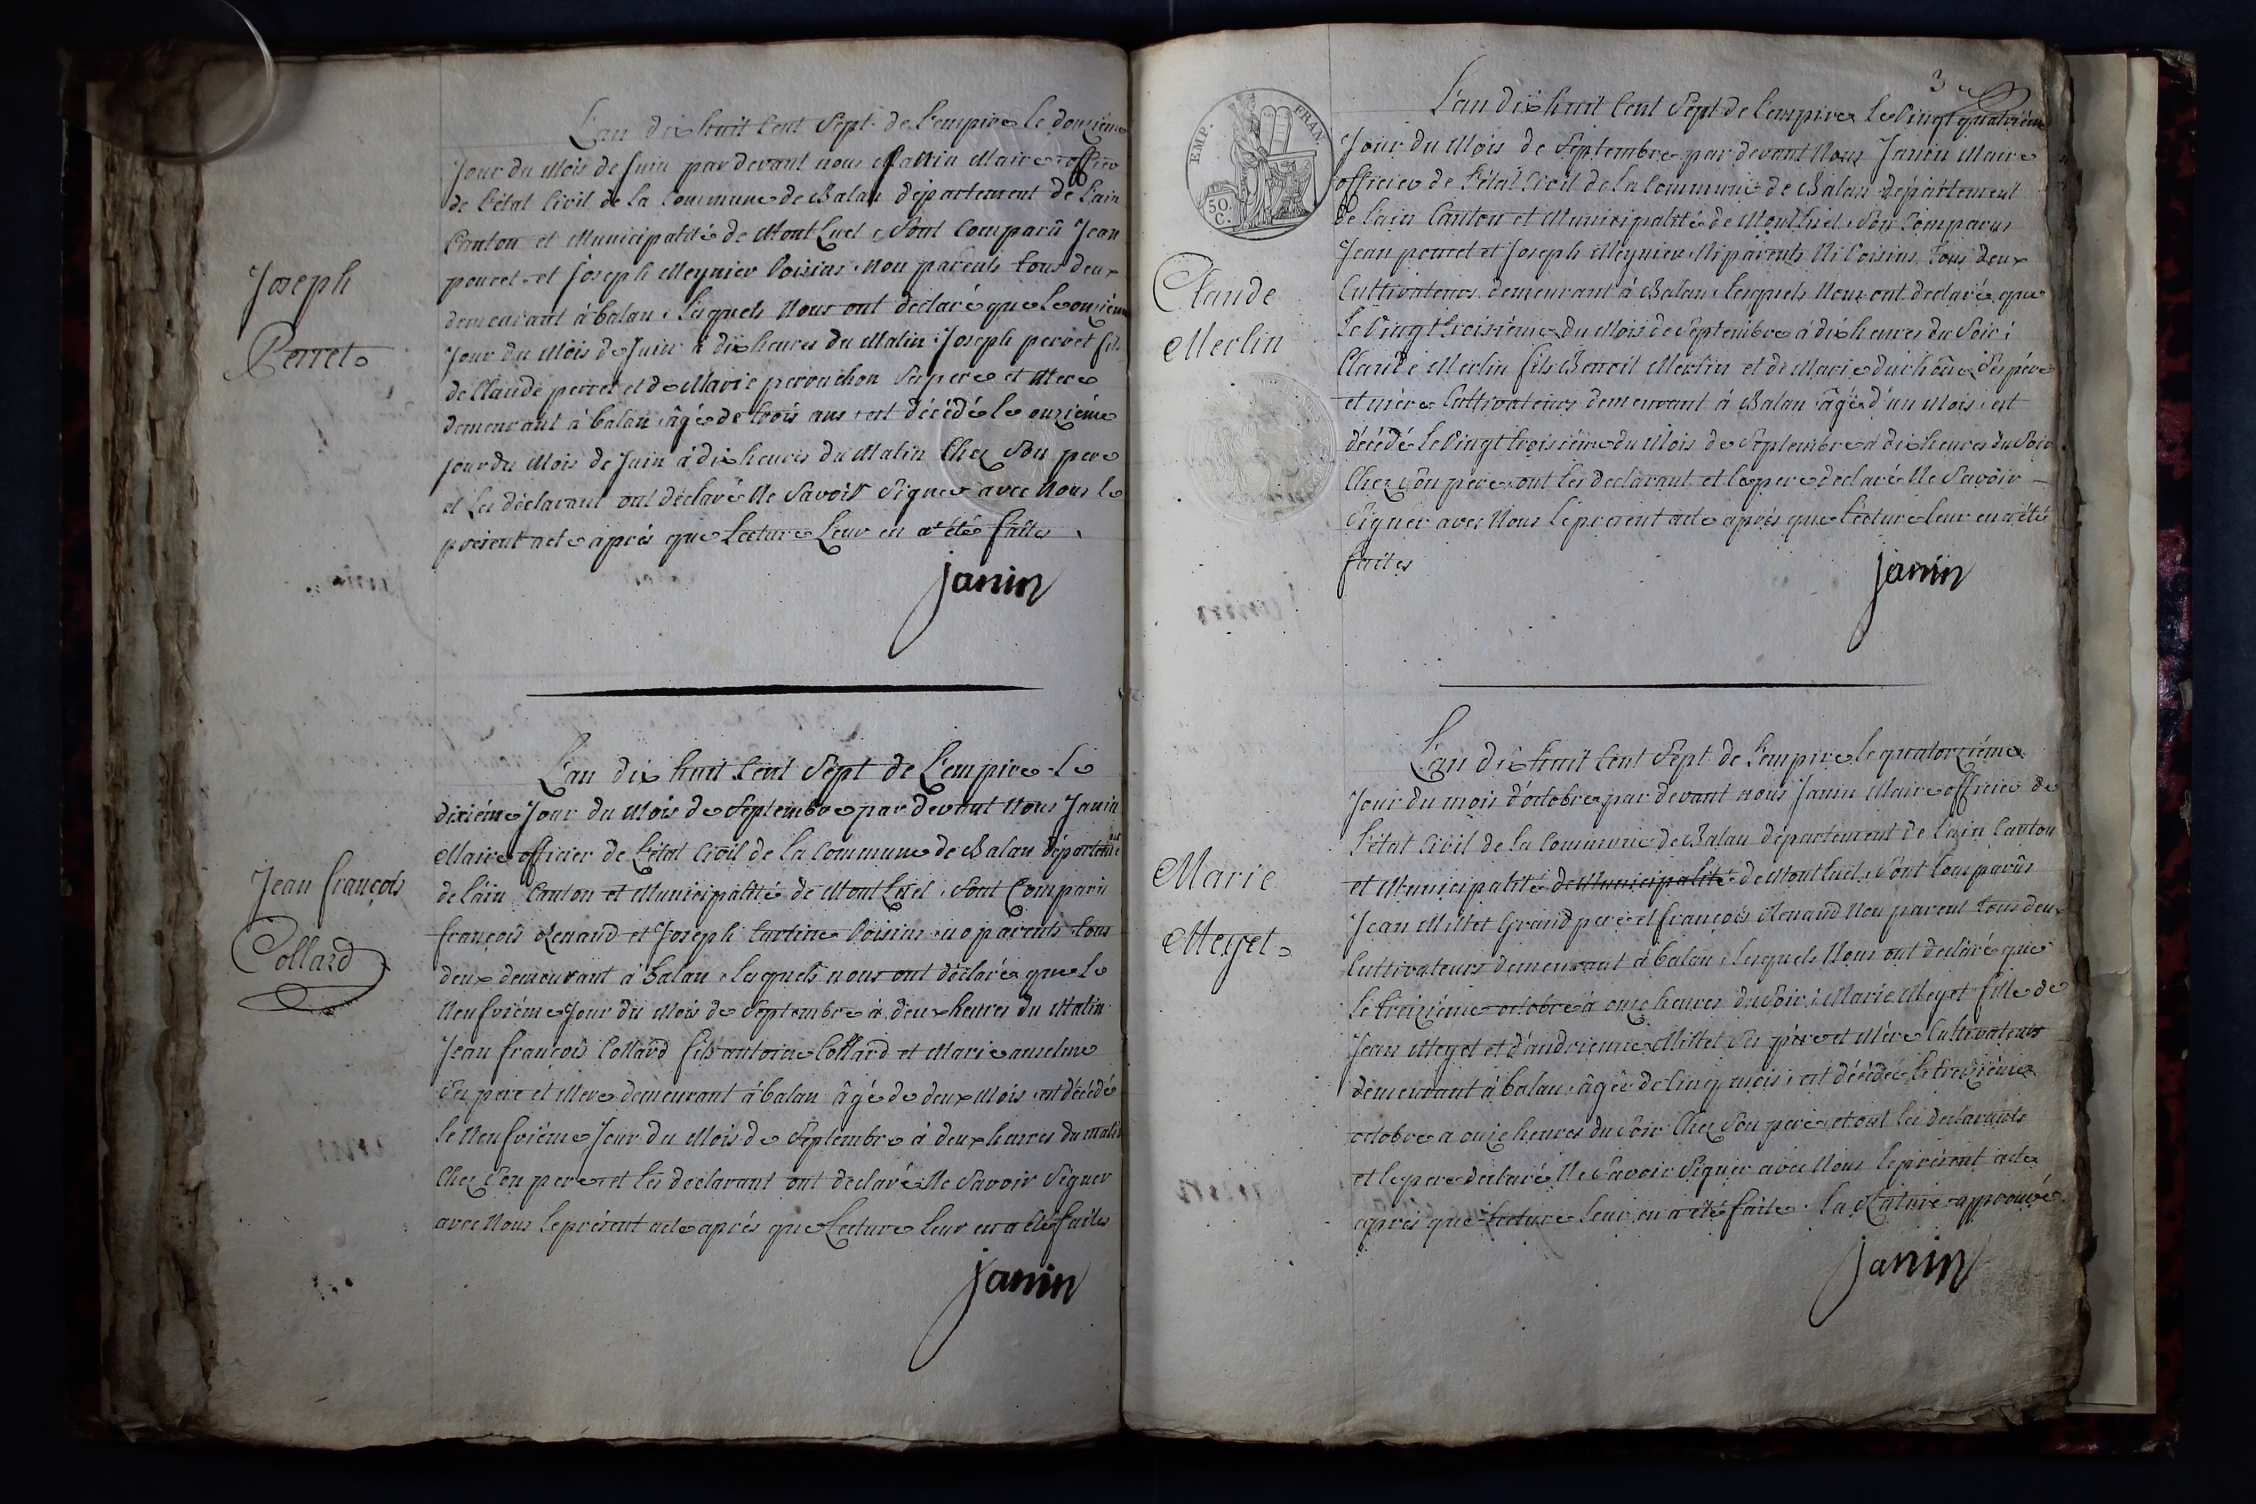 L'an dix huit cent sept de l'empire le douzième
Jour du Mois de Juin par devant nous Janin Maire officier
de l'état Civil de la Commune de Balan département de l'ain
Canton et Municipalité de Mont Luel, Sont Comparû Jean
poncet et Joseph Meynier Voisins Non parents tous deux
demeurant à balan, lesquels Nous ont déclaré que le onzième
Jour du Mois de Juin à dix heures du Matin Joseph perret fils
de Claude perret et de Marie perouchon Ses pere et Mere
demeurant à balan, âgé de trois ans, est décédé le onzième
jour du Mois de Juin à dix heures du Matin Chez Son pere
et Les déclarant ont déclaré Ne Savoir Signer avec Nous le
présent acte après que Lecture Leur en a été faites
janin
Joseph
Perret
L'an dix huit Cent Sept de L'empire Le
dixième Jour du Mois de Septembre par devant Nous Janin
Maire officier de l'état Civil de la Commune de Balan département
de l'ain Canton et Municipalité de Mont Luel, Sont Comparû
françois Renand et Joseph voisins no parents tous
deux demeurant à balan, lesquels nous ont déclaré que le
Neufvième Jour du Mois de Septembre à deux heures du Matin
Jean françois Collard fils antoine Collard et Marie anselme
Ses pere et Mere demeurant à balan âgé de deux Mois est décédé
le Neufvième Jour du Mois de Septembre à deux heures du matin
Chez Son pere et les déclarant ont déclaré Ne Savoir Signer
avec Nous le présent acte après que Lecture leur en a été faites
janin
Jean françois
Collard
3
EMP. FRAN.
50. C.
L'an dix huit Cent Sept de l'empire le Vingt quatrième
Jour du Mois de Septembre par devant Nous Janin Maire
officier de l'état Civil de la Commune de Balan département
de l'ain Canton et Municipalité de Montluel, Son Comparus
Jean poncet et Joseph Meynier Ni parents Ni Voisins, tous deux
Cultivateurs demeurant à Balan, lesquels Nous ont déclaré que
le Vingt troisième du Mois de Septembre à dix heures du Soir;
Claude Merlin fils Benoit Merlin et de Marie Ses père
et mère Cultivateurs demeurant à Balan âgé d'un Mois, est
décédé le Vingt troisième du Mois de Septembre à dix heures du Soir
Chez Son pere, ont les déclarant et le pere déclaré Ne Savoir
Signer avec Nous le présent acte après que lecture leur en a été
faites
janin
Claude
Merlin
L'an dix huit Cent Sept de l'empire le quatorzième
Jour du mois d'octobre par devant nous Janin Maire officier de
l'état Civil de la Commune de Balan département de l'ain Canton
et Municipalité de Municipalité de Montluel, Sont Comparûs
Jean Millet Grand pere et françois Renand Non parent tous deux
Cultivateurs demeurant à balan, lesquels Nous ont déclaré que
le treizième octobre à onze heures du Soir, Marie Meyet fille de
Jean Meyet et d'andrienne Millet Ses père et Mère Cultivateurs
demeurant à balan, âgée de Cinq mois, est décédée le treizième
octobre à onze heures du Soir Chez Son pere, et ont les déclarants
et le pere déclaré Ne Savoir Signer avec Nous le présent acte
après que lecture leur en a été faite. la Rature approuvé
janin
Marie
Meyet